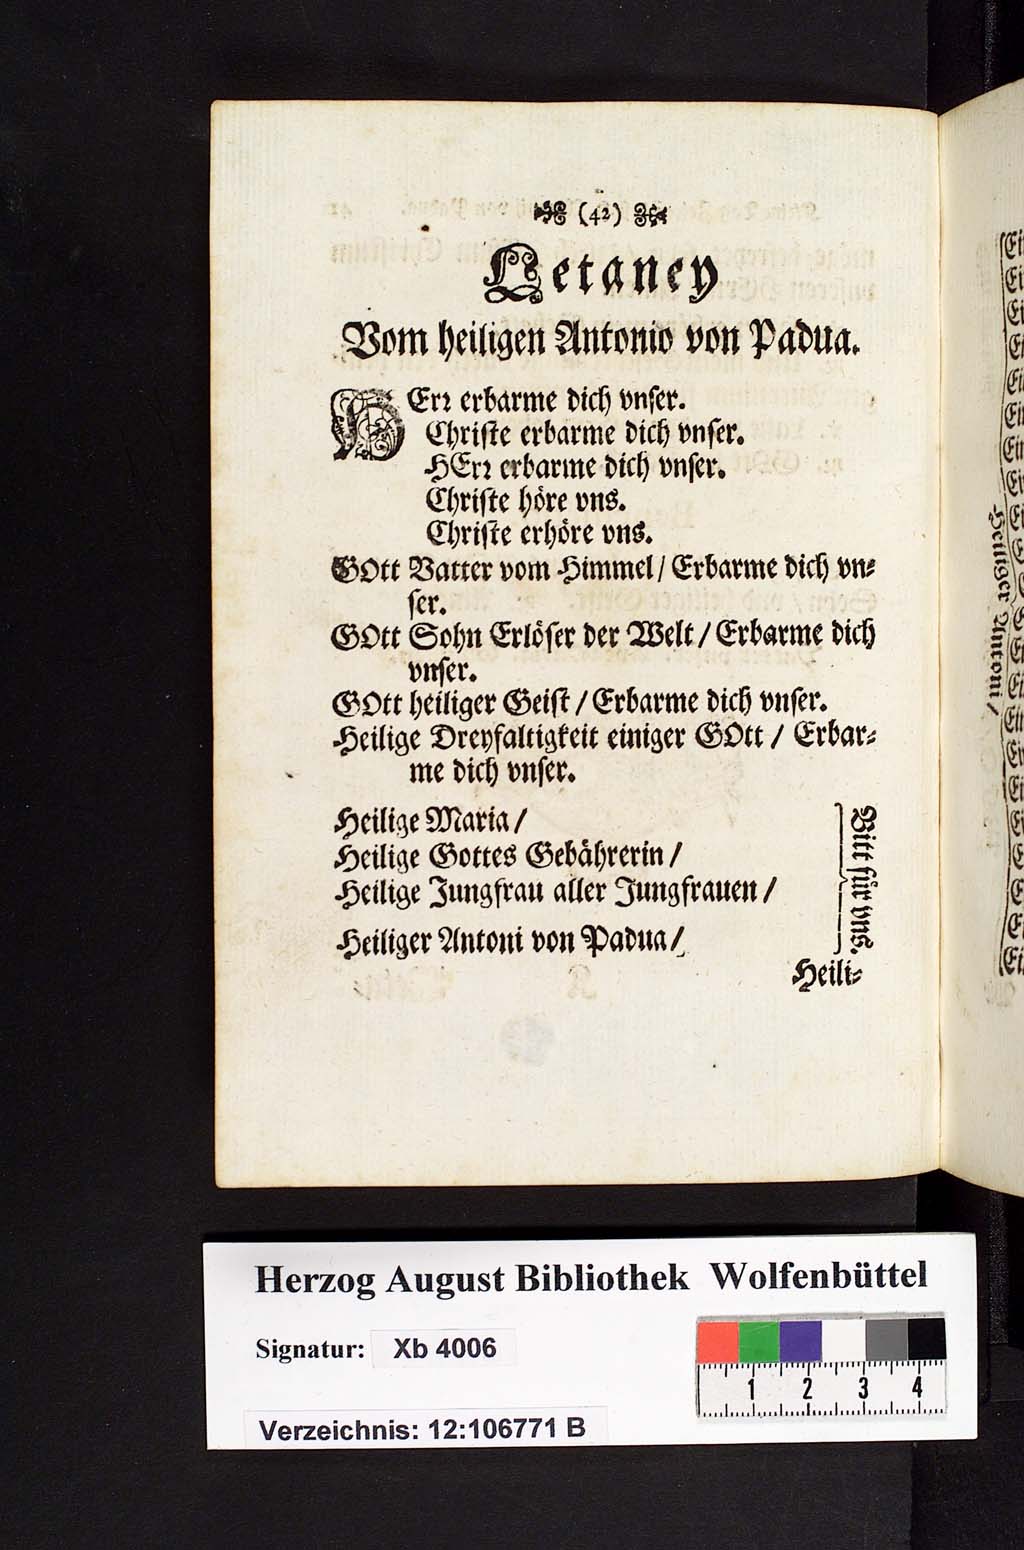 (42)
Letaney
Vom heiligen Antonio von Padua.
HErr erbarme dich vnser.
Christe erbarme dich vnser.
HErr erbarme dich vnser.
Christe höre vns.
Christe erhöre vns.
GOtt Vatter vom Himmel/ Erbarme dich vn-
ser.
GOtt Sohn Erlöser der Welt/ Erbarme dich
vnser.
GOtt heiliger Geist/ Erbarme dich vnser.
Heilige Dreyfaltigkeit einiger GOtt/ Erbar-
me dich vnser.
Heilige Maria/
Heilige Gottes Gebährerin/
Heilige Jungfrau aller Jungfrauen/
Heiliger Antoni von Padua/
Bitt für vns.
Heili-
Heiliger Antoni/
Herzog August Bibliothek Wolfenbüttel
Signatur: Xb 4006
1 2 3 4
Verzeichnis: 12:106771 B